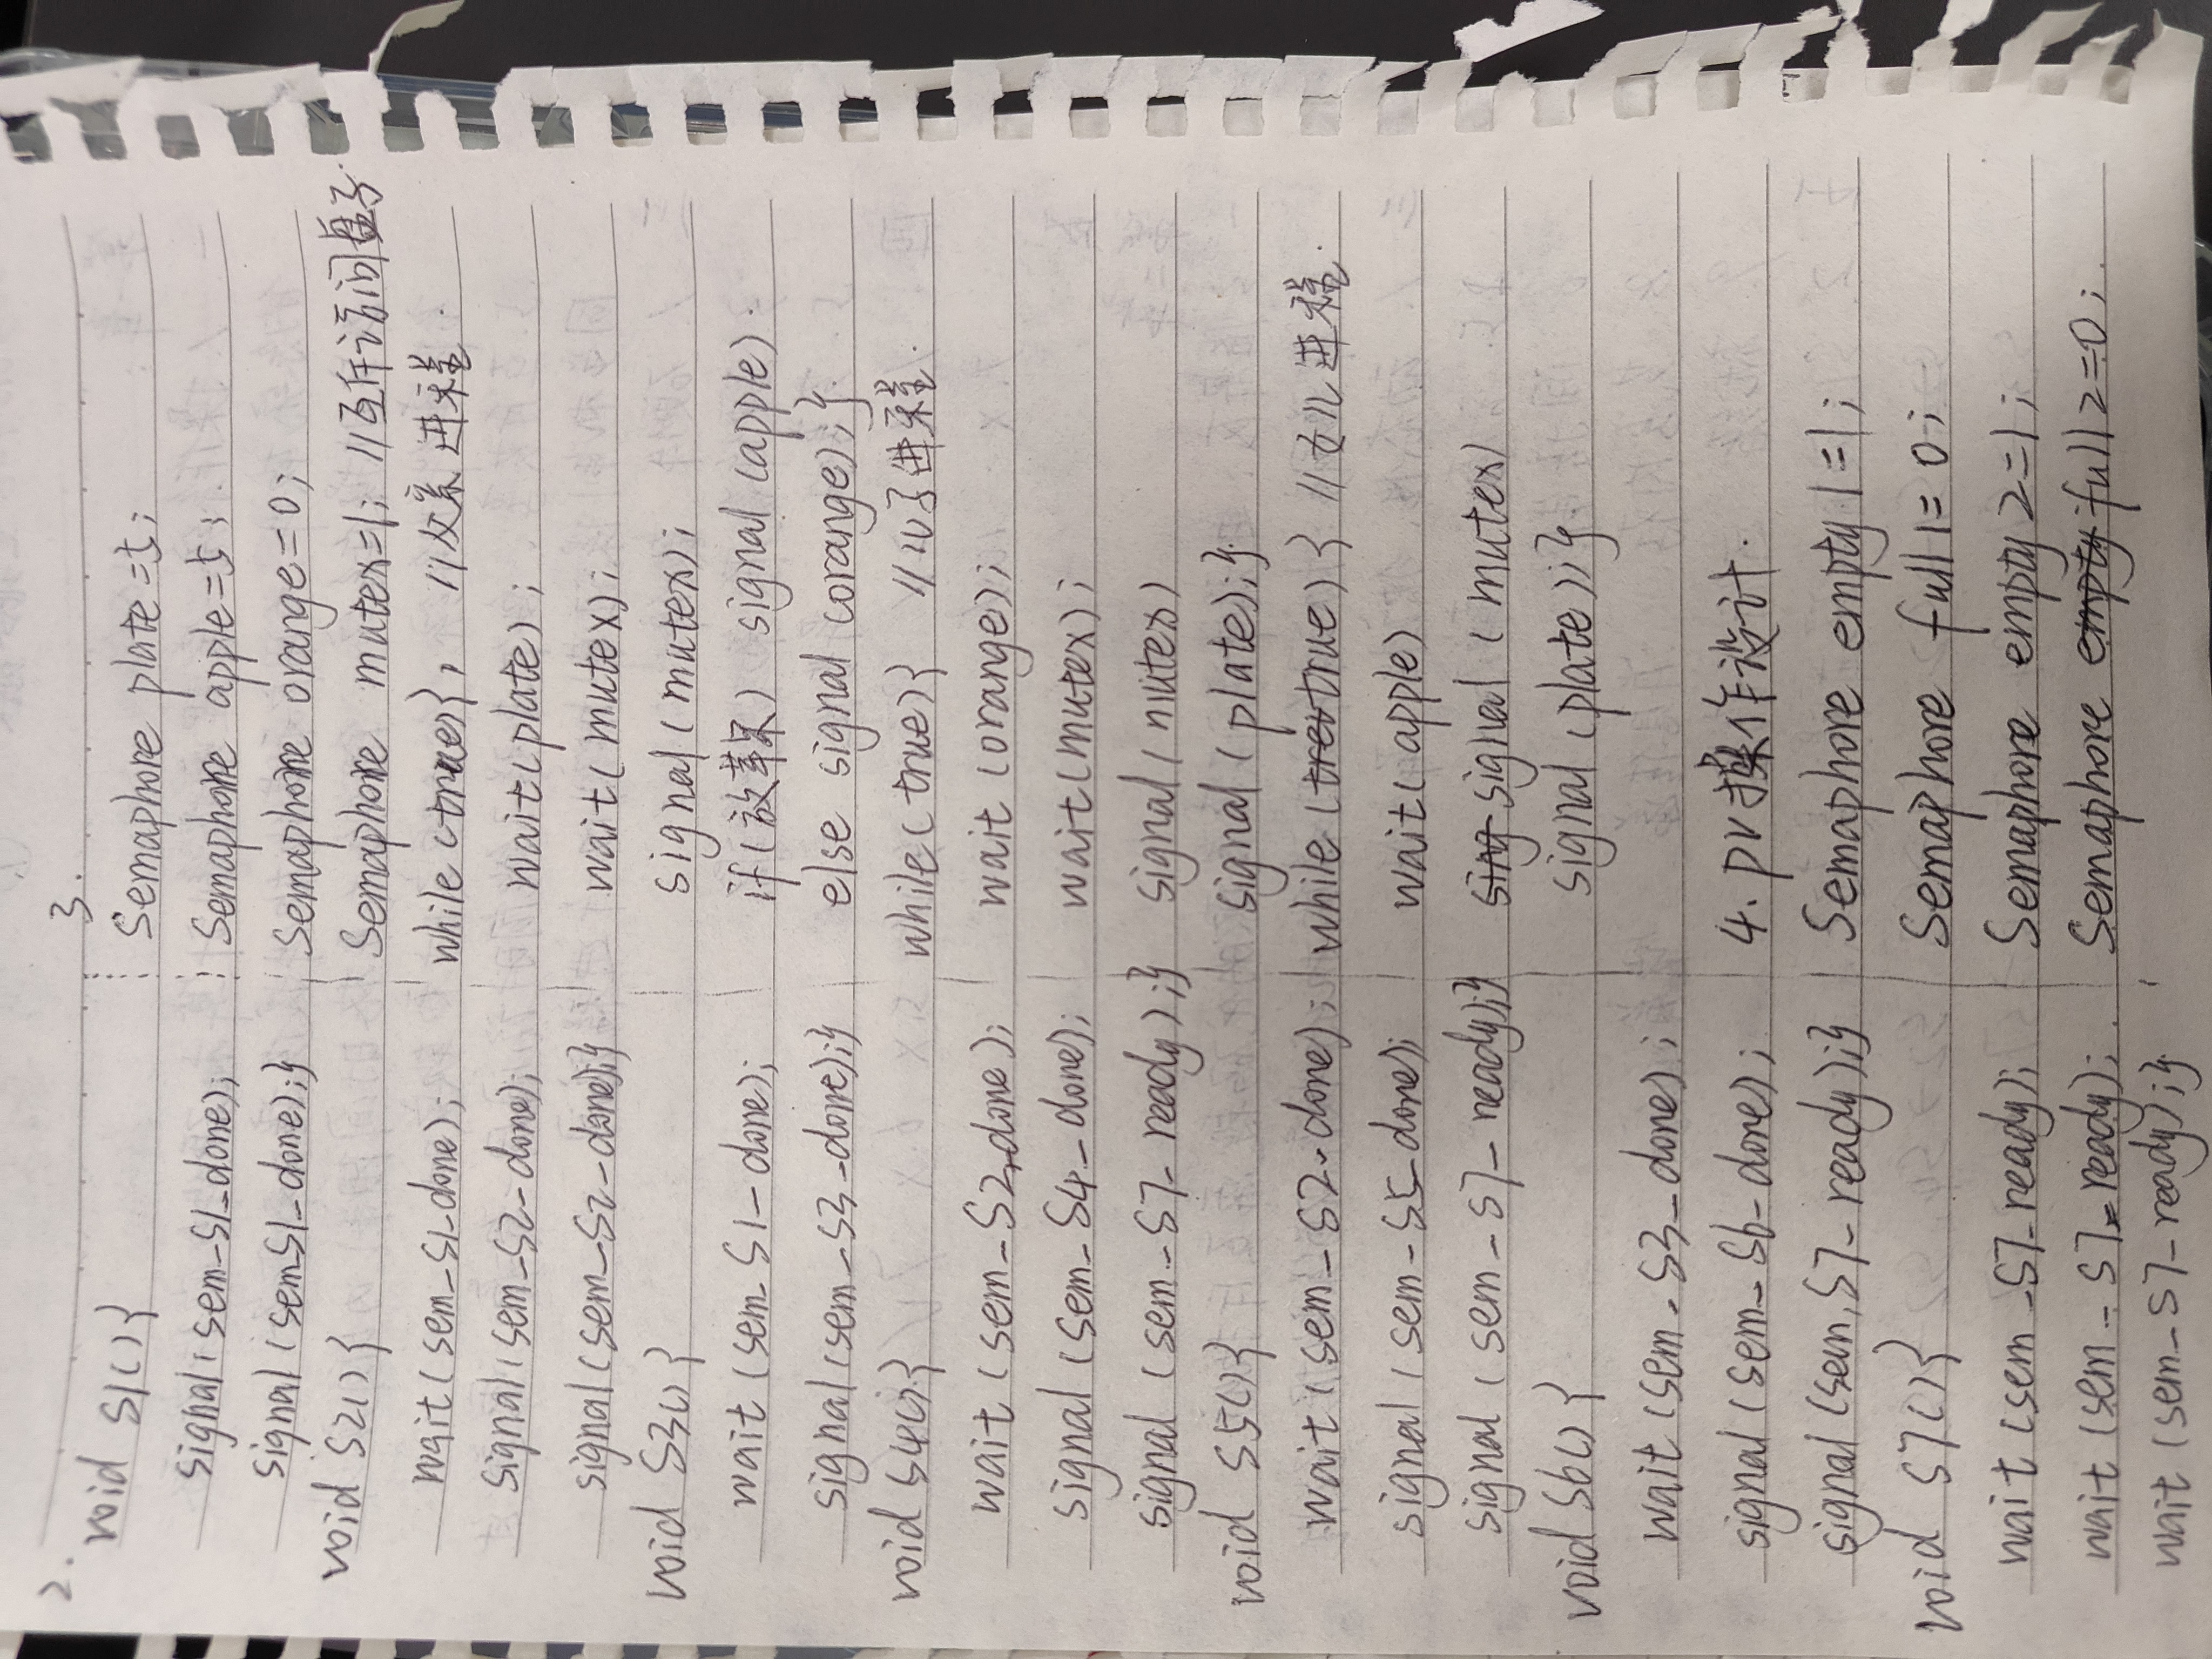 2.
void S1(){
signal(sem_S1_done);
signal(sem_S1_done);}
void S2(){
wait(sem_S1_done);
signal(sem_S2_done);
signal(sem_S2_done);}
void S3(){
wait(sem_S1_done);
signal(sem_S3_done);}
void S4(){
wait(sem_S2_done);
signal(sem_S4_done);
signal(sem_S7_ready);}
void S5(){
wait(sem_S2_done);
signal(sem_S5_done);
signal(sem_S7_ready);}
void S6(){
wait(sem_S3_done);
signal(sem_S6_done);
signal(sem_S7_ready);}
void S7(){
wait(sem_S7_ready);
wait(sem_S7_ready);
wait(sem_S7_ready);}
3.
Semaphore plate=5;
Semaphore apple=5;
Semaphore orange=0;
Semaphore mutex=1; //互斥访问盘子
while(true){, //父亲进程
wait(plate);
wait(mutex);
signal(mutex);
if(放苹果) signal(apple)
else signal(orange);}
while(true){ //儿子进程
wait(orange);
wait(mutex);
signal(mutex)
signal(plate);}
while(true){ //女儿进程
wait(apple)
signal(mutex)
signal(plate);}
4. PV操作设计.
Semaphore empty1=1;
Semaphore full1=0;
Semaphore empty2=1;
Semaphore full2=0;